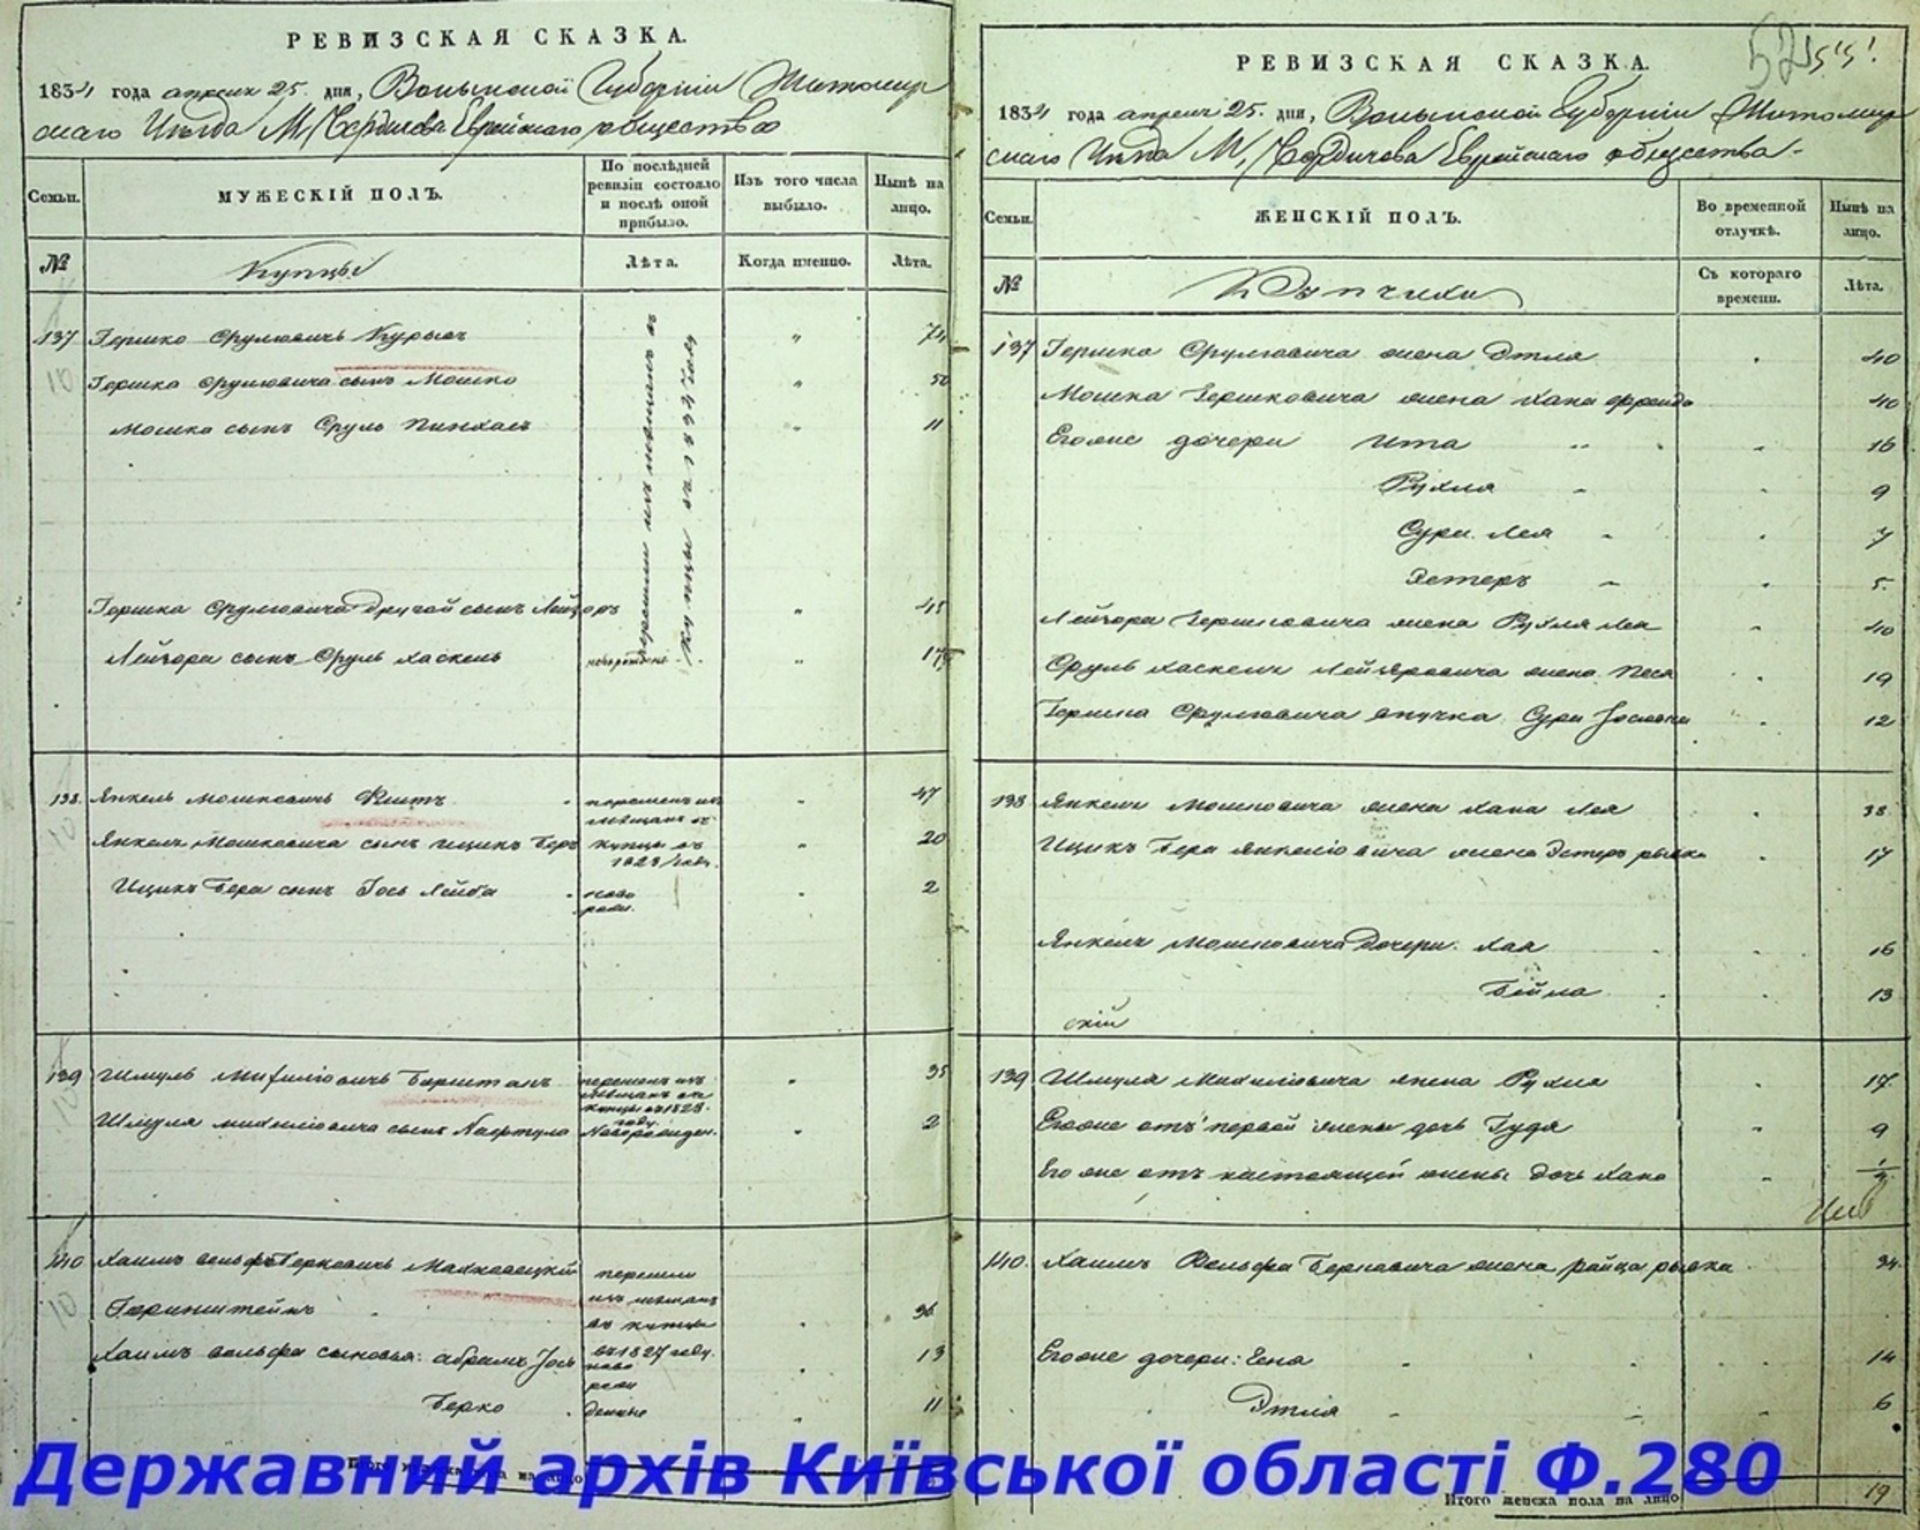 РЕВИЗСКАЯ СКАЗКА.
1834 года апреля 25. дня, Волынской Губернии Житомир
скаго Уезда М. Бердичева Еврейскаго общества
Семьи.
МУЖЕСКІЙ ПОЛЪ.
По послѣдней ревизіи состояло и послѣ оной прибыло.
Изъ того числа выбыло.
Нынѣ на лицо.
№
Купцы
Лѣта.
Когда именно.
Лѣта.
перешли изъ мещанъ въ
Купцы въ 1827 году
137 Гершко Срулювичъ " 74
Гершка Срулювича сынъ Мошко " 50
Мошка сынъ Сруль Пинхасъ " 11
Гершка Срулювича другой сынъ Лейзоръ " 45
Лейзора сынъ Сруль Хаскель " 17
138. Янкель Мошковичъ 47
перешелъ изъ
мещанъ въ
купцы въ
1828 году.
Янкеля Мошковича сынъ Ицикъ Беръ 20
Ицикъ Бера сынъ Іось Лейба 2
ново
рожд.
139 Шмуль Михелювичъ 35
перешелъ изъ
мещанъ въ
купцы въ 1828.
году.
Шмуля Михелювича сынъ Новорожден. 2
140 Хаимъ Вольфъ Берковичъ Махновецкій
Горинштейнъ 36
перешли
изъ мещанъ
въ купцы
въ 1827 году.
Хаимъ Вольфа сыновья: Абрамъ Іось 13
Берко 11
ново
рож
денные
РЕВИЗСКАЯ СКАЗКА.
1834 года апреля 25. дня, Волынской Губернии Житомир
скаго Уезда М. Бердичева Еврейскаго общества.
Семьи.
ЖЕНСКІЙ ПОЛЪ.
Во временной отлучкѣ.
Нынѣ на лицо.
№
Купчихи
Съ котораго времени.
Лѣта.
137 Гершка Срулювича жена Этля 40
Мошка Гершковича жена Хана Фрейда 40
Егоже дочери Ита 16
Рухля 9
Сура Лея 7
Эстеръ 5.
Лейзора Гершковича жена Рухля Леа 40
Сруль Хаскеля Лейзеровича жена Песя 19
Гершка Срулювича внучка Сура 12
138 Янкеля Мошковича жена Хана Лея 38
Ицикъ Бера Янкелювича жена Эстеръ Рывка 17
Янкеля Мошковича дочери: Хая 16
Бейла 13
скій
139 Шмуля Михелювича жена Рухля 17.
Егоже отъ первой жены дочь Гудя 9
Егоже отъ настоящей жены дочь Хана
140. Хаимъ Вольфа Берковича жена Райца Рывка 34.
Егоже дочери: Гена 14
Этля 6
Итого женска пола на лицо 19
Державний архів Київської області Ф.280